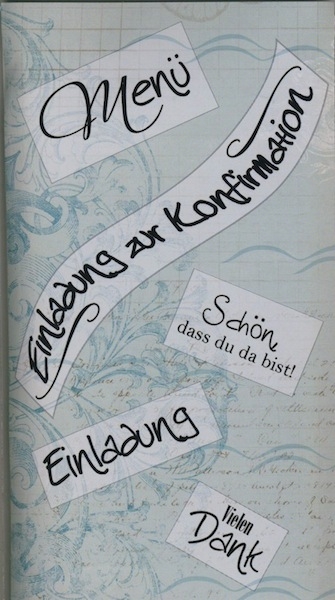 Menü
Einladung zur Konfirmation
Schön,
dass du da bist!
Einladung
Vielen
Dank